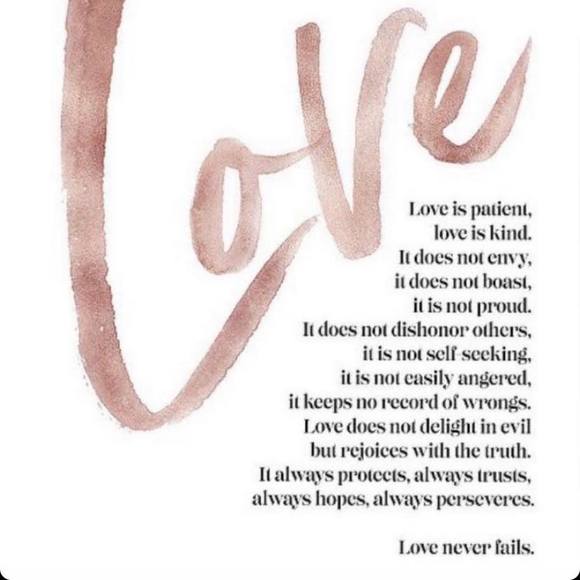 Love
Love is patient,
love is kind.
It does not envy,
it does not boast,
it is not proud.
It does not dishonor others,
it is not self-seeking,
it is not easily angered,
it keeps no record of wrongs.
Love does not delight in evil
but rejoices with the truth.
It always protects, always trusts,
always hopes, always perseveres.
Love never fails.